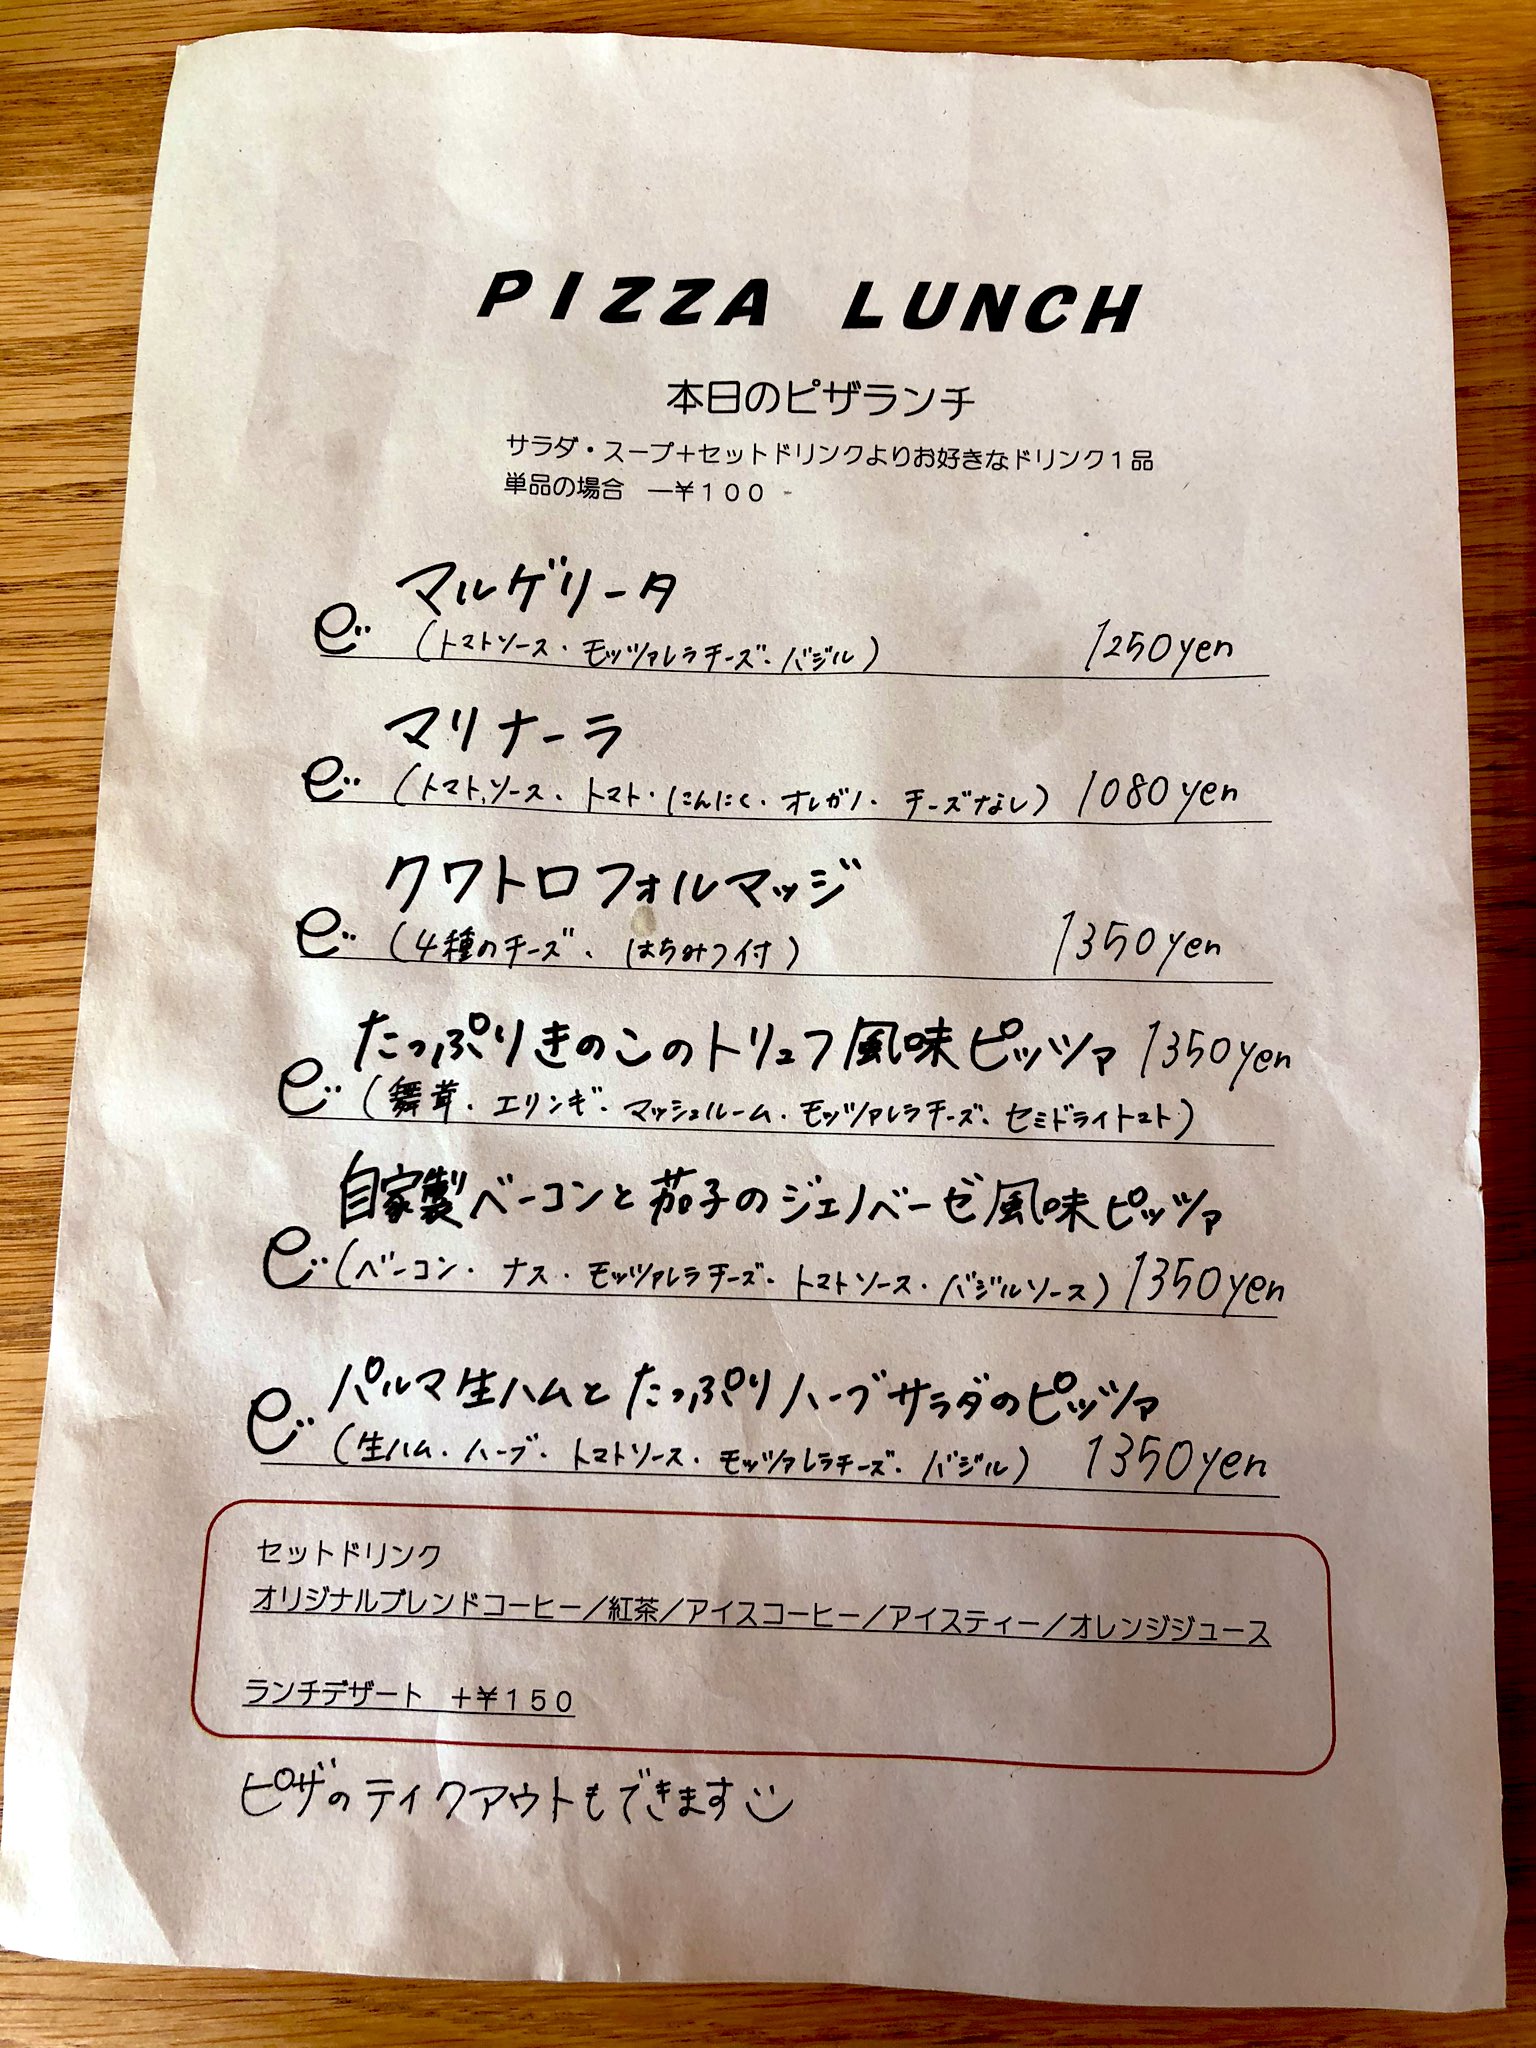 PIZZA LUNCH
本日のピザランチ
サラダ・スープ＋セットドリンクよりお好きなドリンク１品
単品の場合　―￥１００ -
マルゲリータ
(トマトソース・モッツァレラチーズ・バジル) 1250yen
マリナーラ
(トマトソース、トマト・にんにく・オレガノ・チーズなし) 1080yen
クワトロフォルマッジ
(4種のチーズ、はちみつ付) 1350yen
たっぷりきのこのトリュフ風味ピッツァ 1350yen
(舞茸・エリンギ・マッシュルーム・モッツァレラチーズ・セミドライトマト)
自家製ベーコンと茄子のジェノベーゼ風味ピッツァ
(ベーコン・ナス・モッツァレラチーズ・トマトソース・バジルソース) 1350yen
パルマ生ハムとたっぷりハーブサラダのピッツァ
(生ハム・ハーブ・トマトソース・モッツァレラチーズ・バジル) 1350yen
セットドリンク
オリジナルブレンドコーヒー／紅茶／アイスコーヒー／アイスティー／オレンジジュース
ランチデザート　＋￥１５０
ピザのテイクアウトもできます